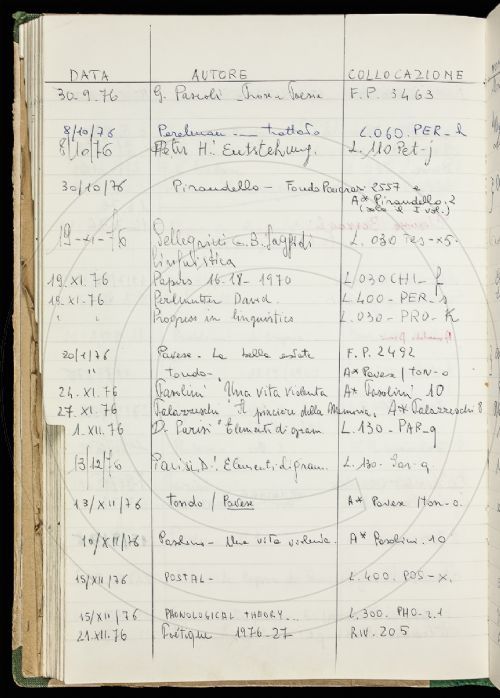 DATA AUTORE COLLOCAZIONE
30.9.76 G. Pascoli Prose e Poesie F.P. 3463
8/10/76 Perelman — trattato L.060.PER_h
8/10/76 Peter H.: Entstehung. L.110 Pet-j
30/10/76 Pirandello - Fondo 2557 e
A* Pirandello.2
(solo il I vol.)
19-XI-76 Pellegrini G.B. Saggi di L. 030 -x5.
linguistica
19.XI.76 Papers 16-18-1970 L 030 CHI_f
19.XI.76 Perlmutter David. L-400-PER_s
" " Progress in linguistics L.030-PRO-K
20/1/76 Pavese. La bella estate F.P. 2492
" tondo- A* Pavese/ton-o
24.XI.76 Pasolini "Una vita violenta A* Pasolini 10
27.XI.76 Palazzeschi "Il piacere della Memoria, A* Palazzeschi 8
1.XII.76 D. Parisi "Elementi di gram. L.130-PAR_q
13/12/76 Parisi, D.: Elementi di gram. L.130. Par-q.
13/XII/76 tondo / Pavese A* Pavese /ton-o.
10/XII/76 Pasolini - Una vita violenta. A* Pasolini.10
15/XII/76 POSTAL- L.400.POS-x.
15/XII/76 PHONOLOGICAL THEORY... L.300.PHO-2.1
21.XII.76 Poétique 1976-27 RIV.205